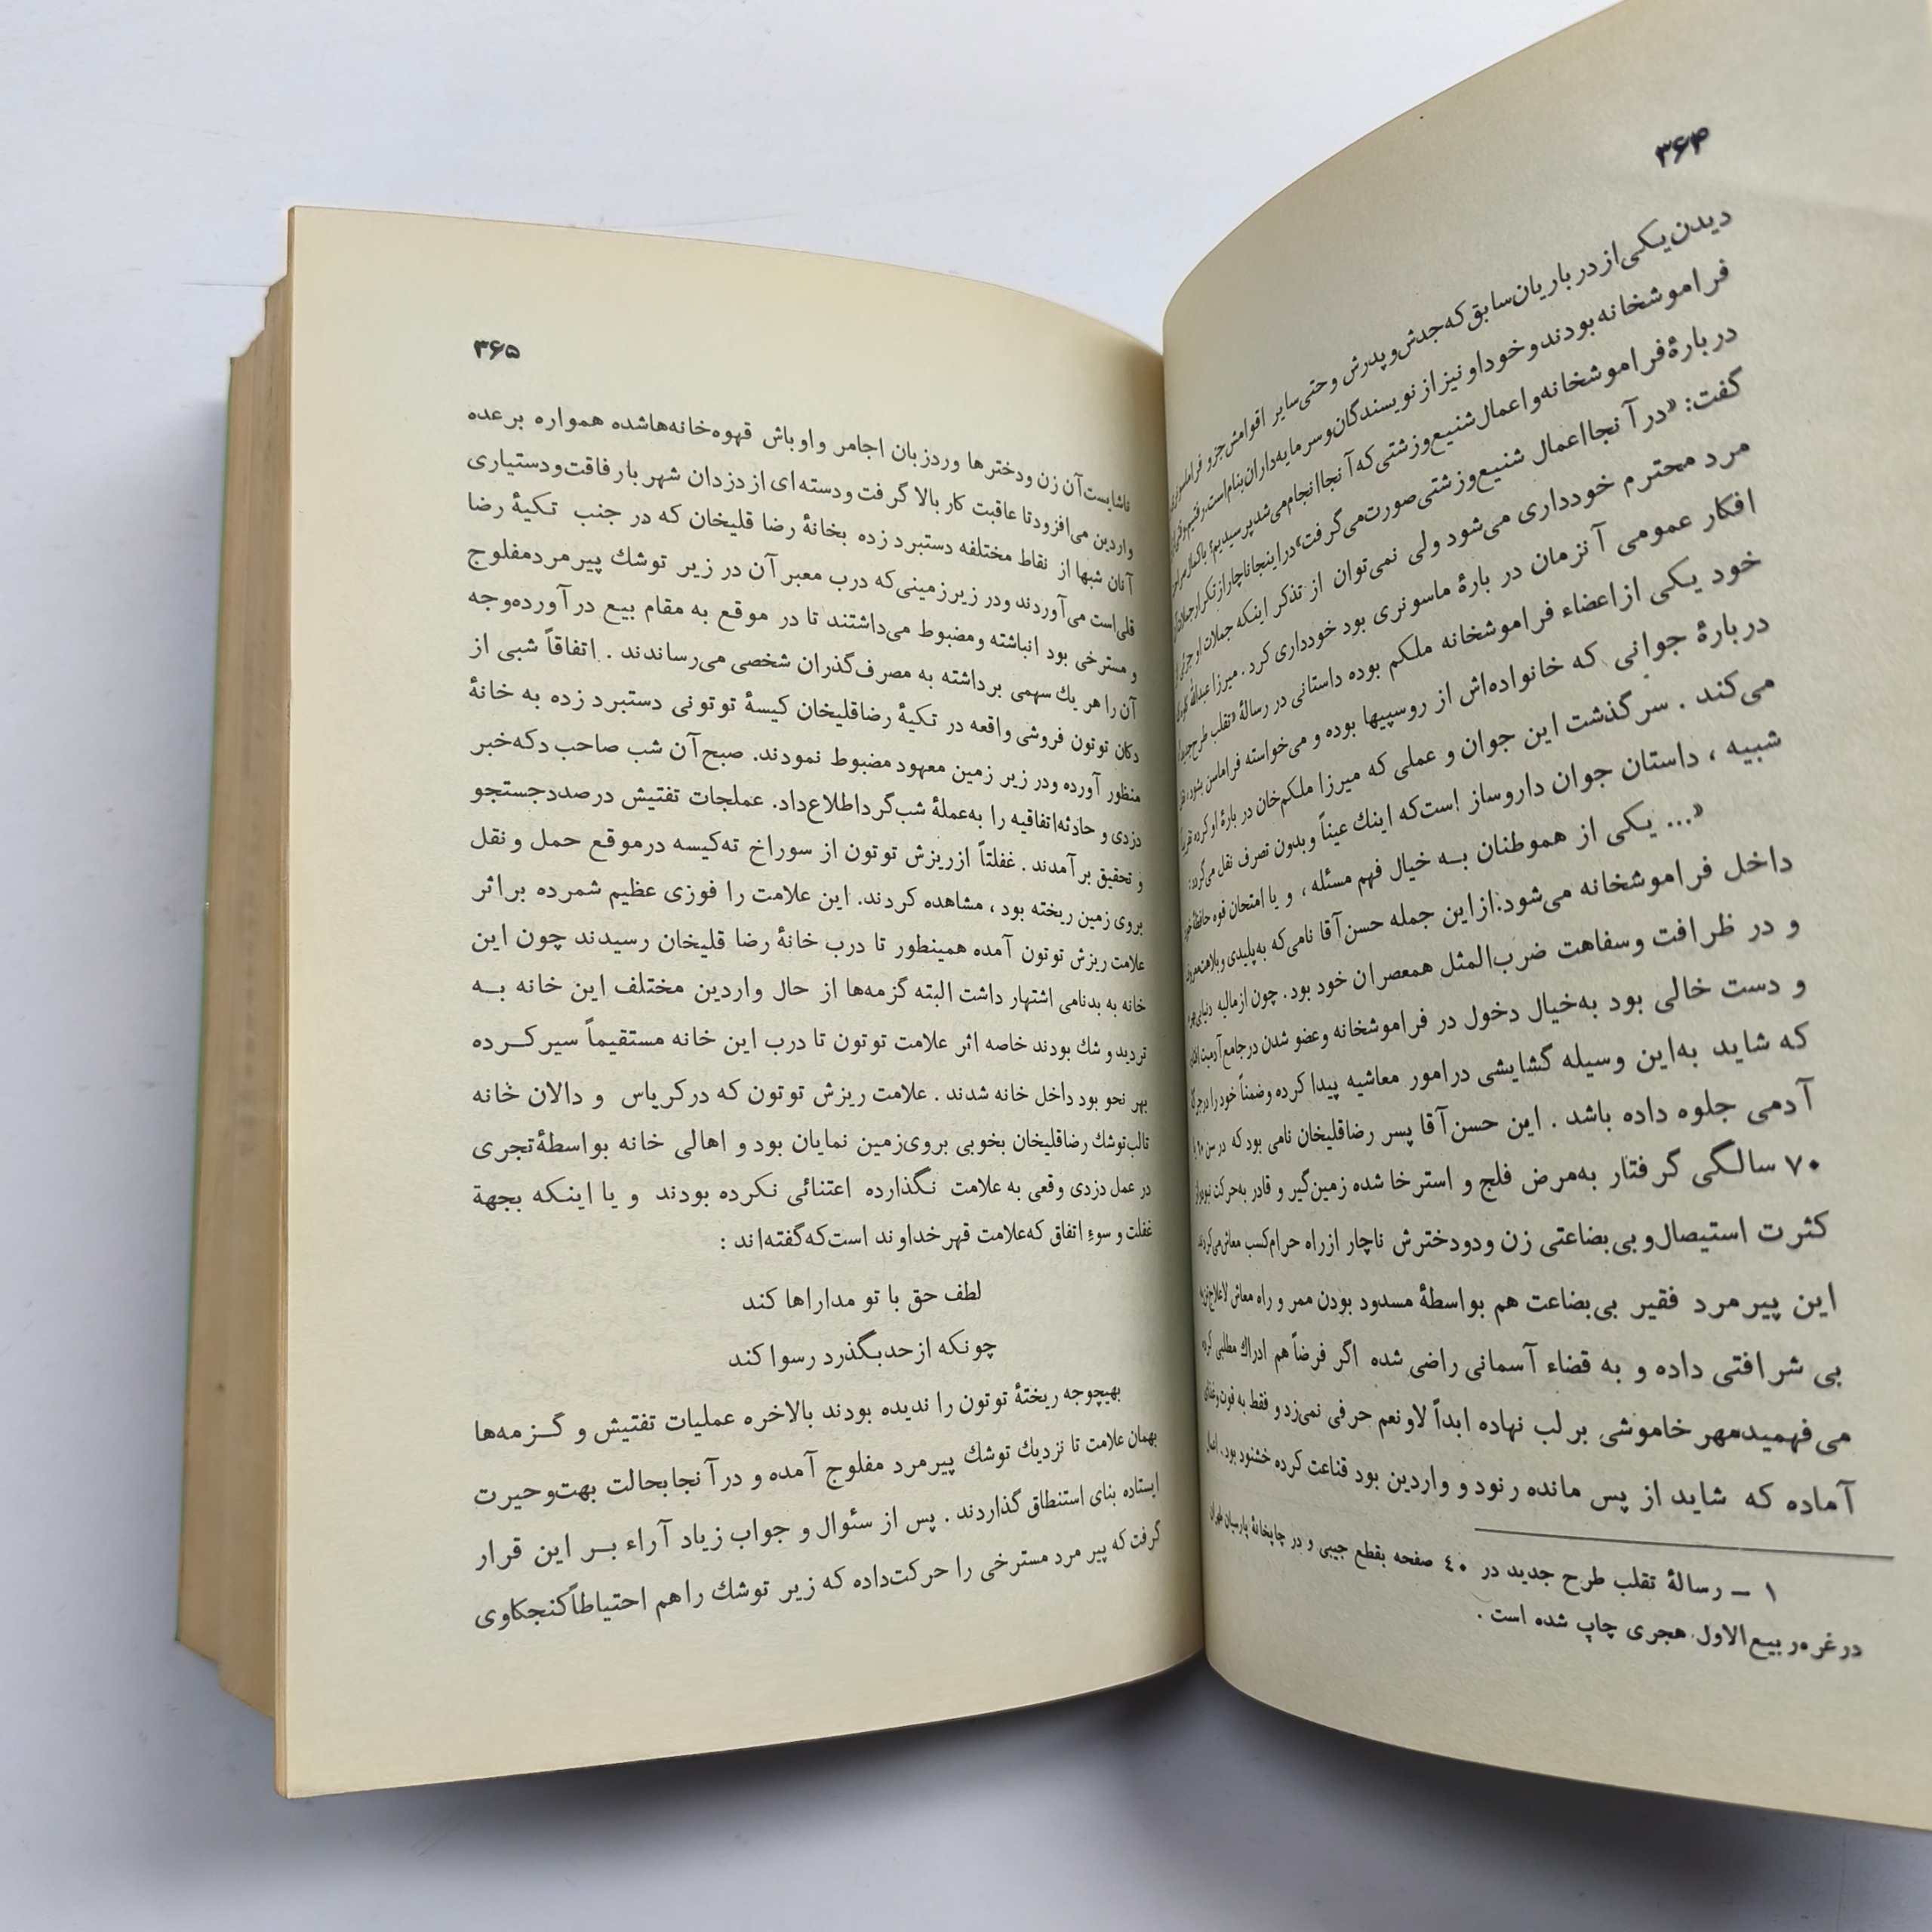 ۳۶۴
دیدن یکی از درباریان سابق که جدش و پدرش و حتی سایر اقوامش جزو
فراموشخانه بودند و خود او نیز از نویسندگان و سرمایه‌داران بنام است
دربارهٔ فراموشخانه و اعمال شنیع و زشتی که آنجا انجام می‌شد پرسیدیم
گفت: «در آنجا اعمال شنیع و زشتی صورت می‌گرفت» در اینجا ناچار از تکرار جملات
مرد محترم خودداری می‌شود ولی نمی‌توان از تذکر اینکه جملات او
افکار عمومی آنزمان در بارهٔ ماسونری بود خودداری کرد . میرزا عبدالله
خود یکی از اعضاء فراموشخانه ملکم بوده داستانی در رسالهٔ «تقلب طرح جدید
دربارهٔ جوانی که خانواده‌اش از روسپیها بوده و می‌خواسته فراماسن بشود
می‌کند . سرگذشت این جوان و عملی که میرزا ملکم‌خان در بارهٔ او کرده
شبیه ، داستان جوان داروساز است که اینك عیناً و بدون تصرف نقل می‌گردد:
«... یکی از هموطنان بـه خیال فهم مسئله ، و یا امتحان قوه حافظهٔ
داخل فراموشخانه می‌شود: از این جمله حسن آقا نامی که به پلیدی و بلاهت
و در ظرافت وسفاهت ضرب‌المثل همعصران خود بود . چون از مالیه
و دست خالی بود به‌خیال دخول در فراموشخانه و عضو شدن در جامع آدمیت
که شاید به‌این وسیله گشایشی در امور معاشیه پیدا کرده و ضمناً خود را
آدمی جلوه داده باشد . این حسن آقا پسر رضاقلیخان نامی بود که در سن
۷۰ سالگی گرفتار به‌مرض فلج و استرخا شده زمین‌گیر و قادر به‌حرکت نبود
کثرت استیصال و بی‌بضاعتی زن ودودخترش ناچار از راه حرام کسب معاش می‌کردند
این پیرمرد فقیر بی‌بضاعت هم بواسطهٔ مسدود بودن ممر و راه معاش لاعلاج
بی شرافتی داده و به قضاء آسمانی راضی شده اگر فرضاً هم ادراك مطلبی کرده
می‌فهمید مهر خاموشی بر لب نهاده ابداً لاو نعم حرفی نمی‌زد و فقط به قوت و غذای
آماده که شاید از پس مانده رنود و واردین بود قناعت کرده خشنود بود.
۱ ــ رسالهٔ تقلب طرح جدید در ۴۰ صفحه بقطع جیبی و در چاپخانهٔ پارسیان طهران
در غره ربیع‌الاول هجری چاپ شده است .
۳۶۵
ناشایست آن زن ودخترها وردزبان اجامر و اوباش قهوه‌خانه‌ها شده همواره بر عده
واردین می‌افزود تا عاقبت کار بالا گرفت و دسته‌ای از دزدان شهر بارفاقت و دستیاری
آنان شبها از نقاط مختلفه دستبرد زده بخانهٔ رضا قلیخان که در جنب تکیهٔ رضا
قلی است می‌آوردند ودر زیرزمینی که درب معبر آن در زیر توشك پیرمرد مفلوج
و مسترخی بود انباشته ومضبوط می‌داشتند تا در موقع به مقام بیع در آورده وجه
آن را هر یك سهمی برداشته به مصرف گذران شخصی می‌رساندند . اتفاقاً شبی از
دکان توتون فروشی واقعه در تکیهٔ رضاقلیخان کیسهٔ توتونی دستبرد زده به خانهٔ
منظور آورده ودر زیر زمین معهود مضبوط نمودند. صبح آن شب صاحب دکه خبر
دزدی و حادثه اتفاقیه را به‌عملهٔ شب‌گرد اطلاع‌داد. عملجات تفتیش درصدد جستجو
و تحقیق بر آمدند . غفلتاً از ریزش توتون از سوراخ ته‌کیسه در موقع حمل و نقل
بروی زمین ریخته بود ، مشاهده کردند. این علامت را فوزی عظیم شمرده بر اثر
علامت ریزش توتون آمده همینطور تا درب خانهٔ رضا قلیخان رسیدند چون این
خانه به بدنامی اشتهار داشت البته گزمه‌ها از حال واردین مختلف این خانه بـه
تردید و شك بودند خاصه اثر علامت توتون تا درب این خانه مستقیماً سیر کـرده
بهر نحو بود داخل خانه شدند . علامت ریزش توتون که در کریاس و دالان خانه
تالب توشك رضاقلیخان بخوبی بروی زمین نمایان بود و اهالی خانه بواسطهٔ تجری
در عمل دزدی وقعی به علامت نگذارده اعتنائی نکرده بودند و یا اینکه بجهة
غفلت و سوء اتفاق که علامت قهر خداوند است که گفته‌اند :
لطف حق با تو مداراها کند
چونکه از حد بگذرد رسوا کند
بهیچوجه ریختهٔ توتون را ندیده بودند بالاخره عملیات تفتیش و گـزمه‌ها
بهمان علامت تا نزدیك توشك پیرمرد مفلوج آمده و در آنجا بحالت بهت و حیرت
ایستاده بنای استنطاق گذاردند . پس از سئوال و جواب زیاد آراء بـر این قرار
گرفت که پیر مرد مسترخی را حرکت داده که زیر توشك را هم احتیاطاً کنجکاوی